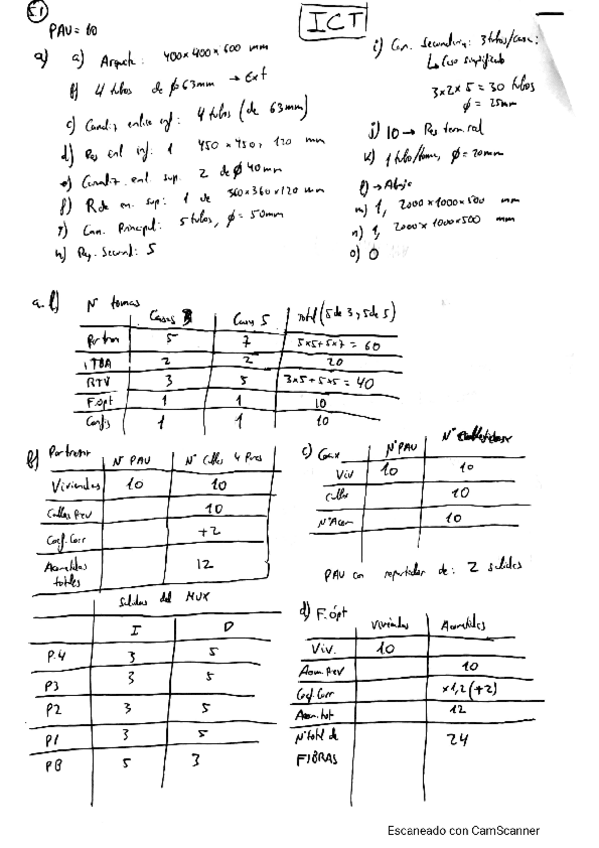 5.1
ICT
PAU = 10
a) a) Arqueta: 400x400x600 mm
b) 4 tubos de ϕ 63mm → Ext
c) Canaliz enlace inf: 4 tubos (de 63mm)
d) Reg enl inf: 1 450 x 450 x 120 mm
e) Canaliz. enl. sup. 2 de ϕ 40mm
f) R de en. sup: 1 de 360x360x120 mm
g) Can. Principal: 5 tubos, ϕ = 50mm
h) Reg. Secund: 5
i) Can. secundaria: 3 tubos/casa:
↳ Caso simplificado
3x2x5 = 30 tubos
ϕ = 25mm
j) 10 → Reg terminal
k) 1 tubo/toma, ϕ = 20mm
l) → Abajo
m) 1, 2000x1000x500 mm
n) 1, 2000x1000x500 mm
o) 0
a. l) Nº tomas
Casas 3 Casas 5 Total (5 de 3, 5 de 5)
Par tren 5 7 5x5+5x7 = 60
TBA 2 2 20
RTV 3 5 3x5+5x5 = 40
F.opt 1 1 10
Config 1 1 10
b) Par trenz
Nº PAU Nº Cables 4 Pares
Viviendas 10 10
Cables Prev 10
Coef. Corr +2
Acometidas totales 12
Salidas del MUX
I D
P.4 3 5
P3 3 5
P2 3 5
P1 3 5
PB 5 3
c) Coax
Nº PAU
Viv 10 10
Cables 10
Nº Acom 10
PAU con repartidor de: 2 salidas
d) F. ópt
Viviendas Acometidas
Viv. 10
Acom. Prev 10
Coef. Corr x1,2 (+2)
Acom. tot 12
Nº total de FIBRAS 24
Escaneado con CamScanner